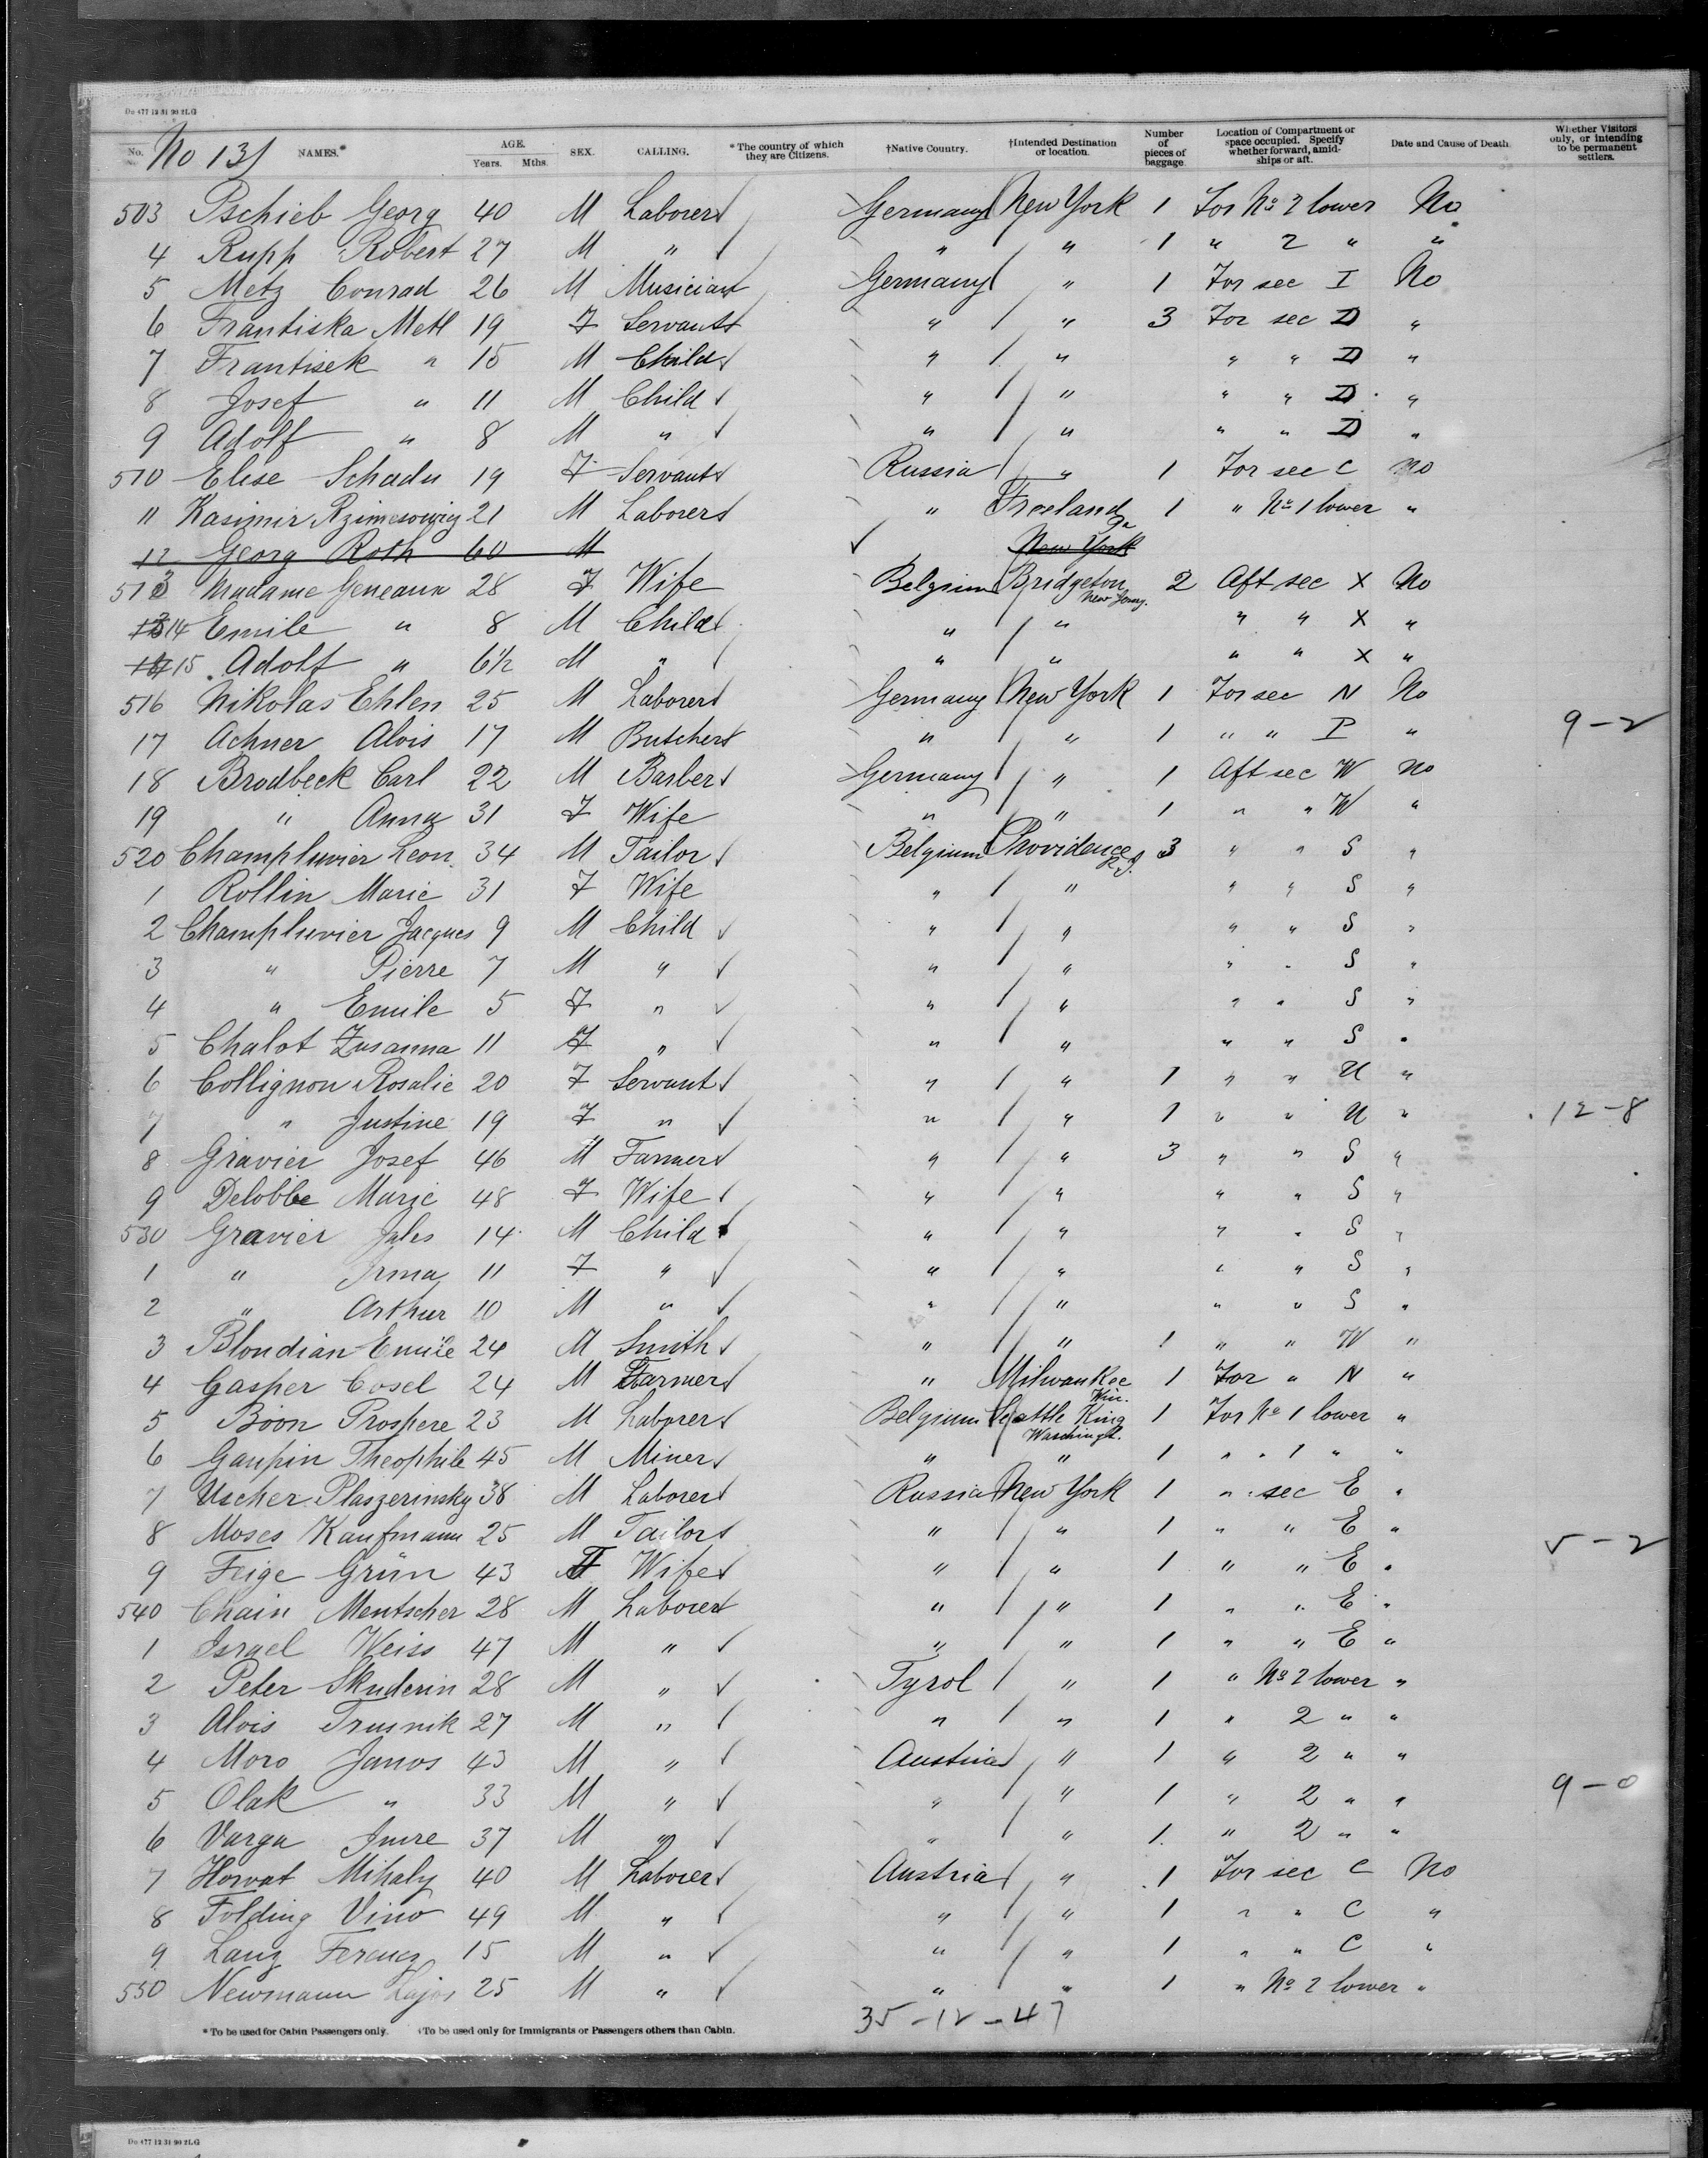 Du 477 12 31 90 2LG
No. No 131 NAMES.* AGE. Years. Mths. SEX. CALLING. *The country of which they are Citizens. †Native Country. †Intended Destination or location. Number of pieces of baggage. Location of Compartment or space occupied. Specify whether forward, amidships or aft. Date and Cause of Death. Whether Visitors only, or intending to be permanent settlers.
503 Pschieb Georg 40 M Laborer Germany New York 1 For No 2 lower No
4 Rupp Robert 27 M " " " 1 " 2 " "
5 Metz Conrad 26 M Musician Germany " 1 For sec I No
6 Frantiska Metl 19 F Servant " " 3 For sec D "
7 Frantisek " 15 M Child " " " " D "
8 Josef " 11 M Child " " " " D "
9 Adolf " 8 M " " " " " D "
510 Elise Schadu 19 F Servant Russia " 1 For sec C No
11 Kasimir 21 M Laborer " Freeland Pa 1 " No 1 lower "
12 Georg Roth 60 M New York
513 Madame Geneaux 28 F Wife Belgium Bridgeton New Jersy. 2 Aft sec X No
14 Emile " 8 M Child " " " " X "
15 Adolf " 6½ M " " " " " X "
516 Nikolas Ehlen 25 M Laborer Germany New York 1 For sec N No
17 Achner Alois 17 M Butcher " " 1 " " P " 9-2
18 Brodbeck Carl 22 M Barber Germany " 1 Aft sec W No
19 " Anna 31 F Wife " " 1 " " W "
520 Champluvier Leon 34 M Tailor Belgium Providence R.I. 3 " " S "
1 Rollin Marie 31 F Wife " " " " S "
2 Champluvier Jacques 9 M Child " " " " S "
3 " Pierre 7 M " " " " " S "
4 " Emile 5 F " " " " " S "
5 Chalot Zusanna 11 F " " " " " S "
6 Collignon Rosalie 20 F Servant " " 1 " " U "
7 " Justine 19 F " " " 1 " " U " 12-8
8 Gravier Josef 46 M Farmer " " 3 " " S "
9 Delobbe Marie 48 F Wife " " " " S "
530 Gravier Jules 14 M Child " " " " S "
1 " Irma 11 F " " " " " S "
2 " Arthur 10 M " " " " " S "
3 Blondian Emile 24 M Smith " " 1 " " W "
4 Gasper Cosel 24 M Farmer " Milwaukee Win. 1 For " N "
5 Boon Prospere 23 M Laborer Belgium Seattle King Washingt. 1 For No 1 lower "
6 Gaupin Theophile 45 M Miner " " 1 " " 1 " "
7 Uscher Plaszerinsky 38 M Laborer Russia New York 1 " sec E "
8 Moses Kaufmann 25 M Tailor " " 1 " " E " 5-2
9 Feige Grün 43 F Wife " " 1 " " E "
540 Chain Mentscher 28 M Laborer " " 1 " " E "
1 Israel Weiss 47 M " " " 1 " " E "
2 Peter Skuderin 28 M " Tyrol " 1 " No 2 lower "
3 Alois Trusnik 27 M " " " 1 " 2 " "
4 Moro Janos 43 M " Austria " 1 " 2 " "
5 Olak " 33 M " " " 1 " 2 " " 9-0
6 Varga Imre 37 M " " " 1 " 2 " "
7 Horvat Mihaly 40 M Laborer Austria " 1 For sec C No
8 Folding Vino 49 M " " " 1 " " C "
9 Lanz Ferencz 15 M " " " 1 " " C "
550 Newmann Lajos 25 M " " " 1 " No 2 lower "
35-12-47
*To be used for Cabin Passengers only. †To be used only for Immigrants or Passengers others than Cabin.
Du 477 12 31 90 2LG